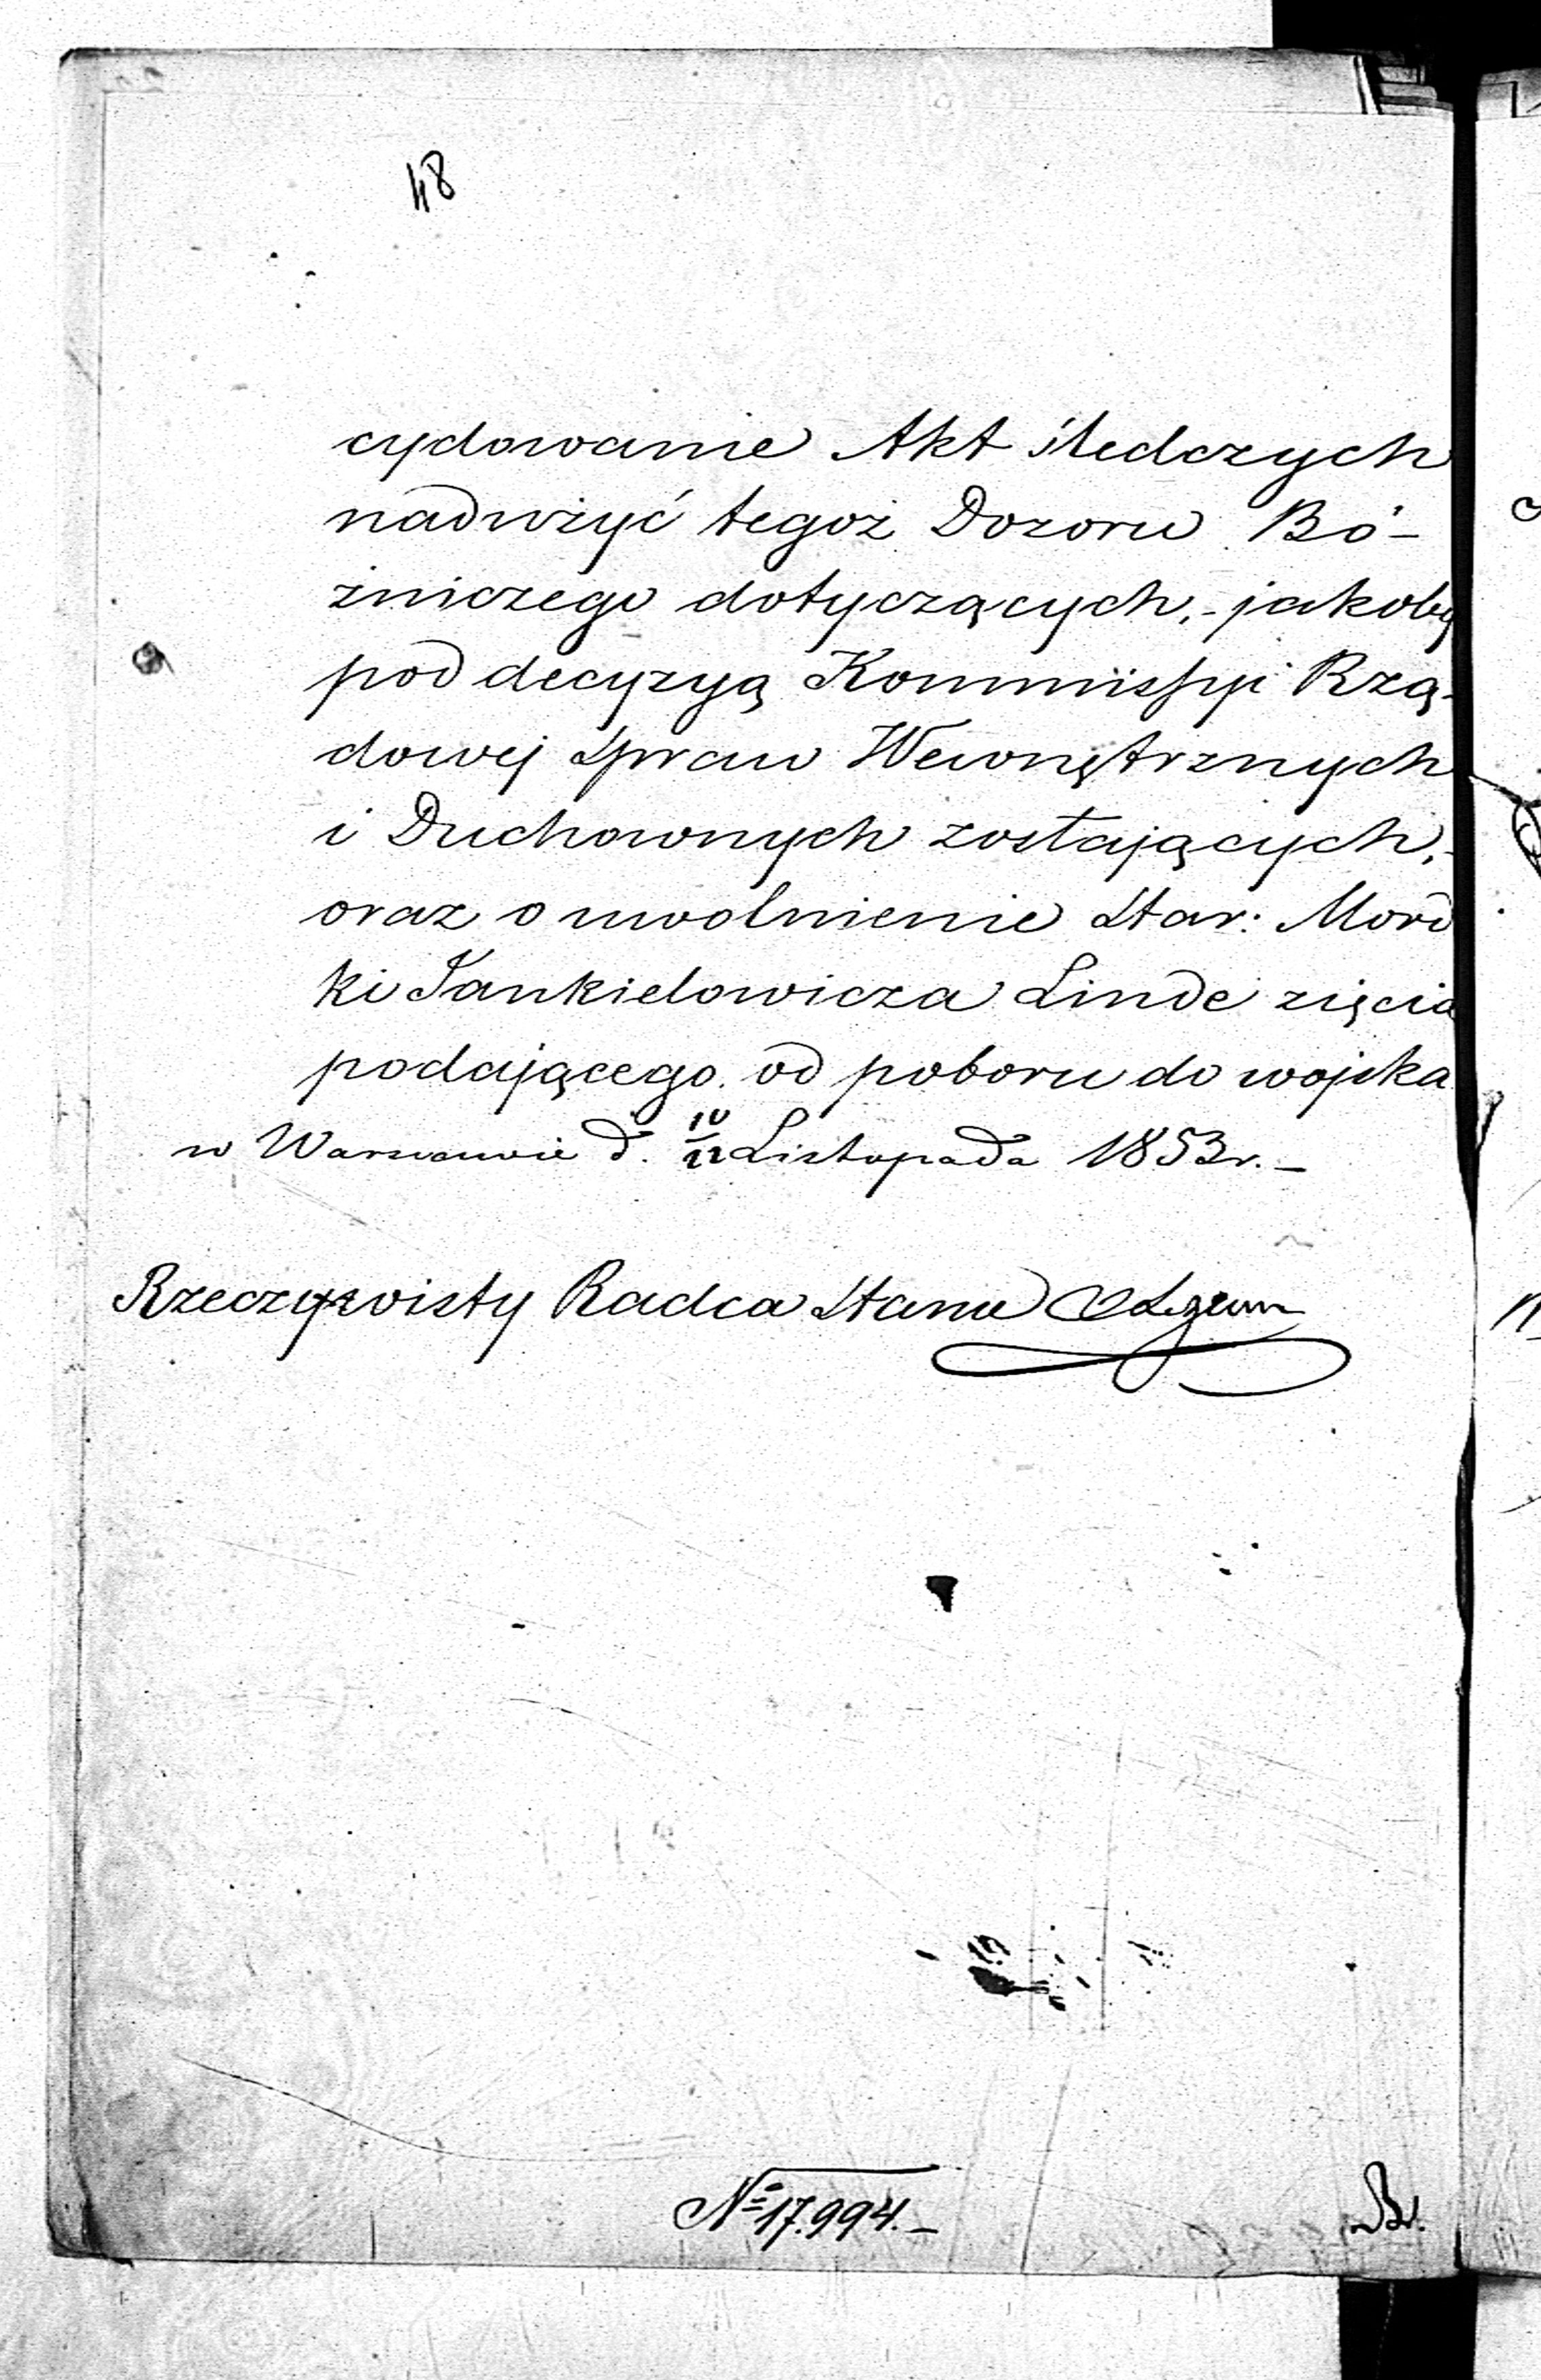 48
cydowanie Akt śledczych
nadużyć tegoż Dozoru Bó-
źniczego dotyczących, - jakoby
pod decyzyą Kommissyi Rzą-
dowej Spraw Wewnętrznych
i Duchownych zostających, -
oraz o uwolnienie Star: Mord
ki Jankielowicza Linde zięcia
podającego od poboru do wojska
w Warszawie d. 10/22 Listopada 1853 r. –
Rzeczywisty Radca Stanu
№ 17.994. –